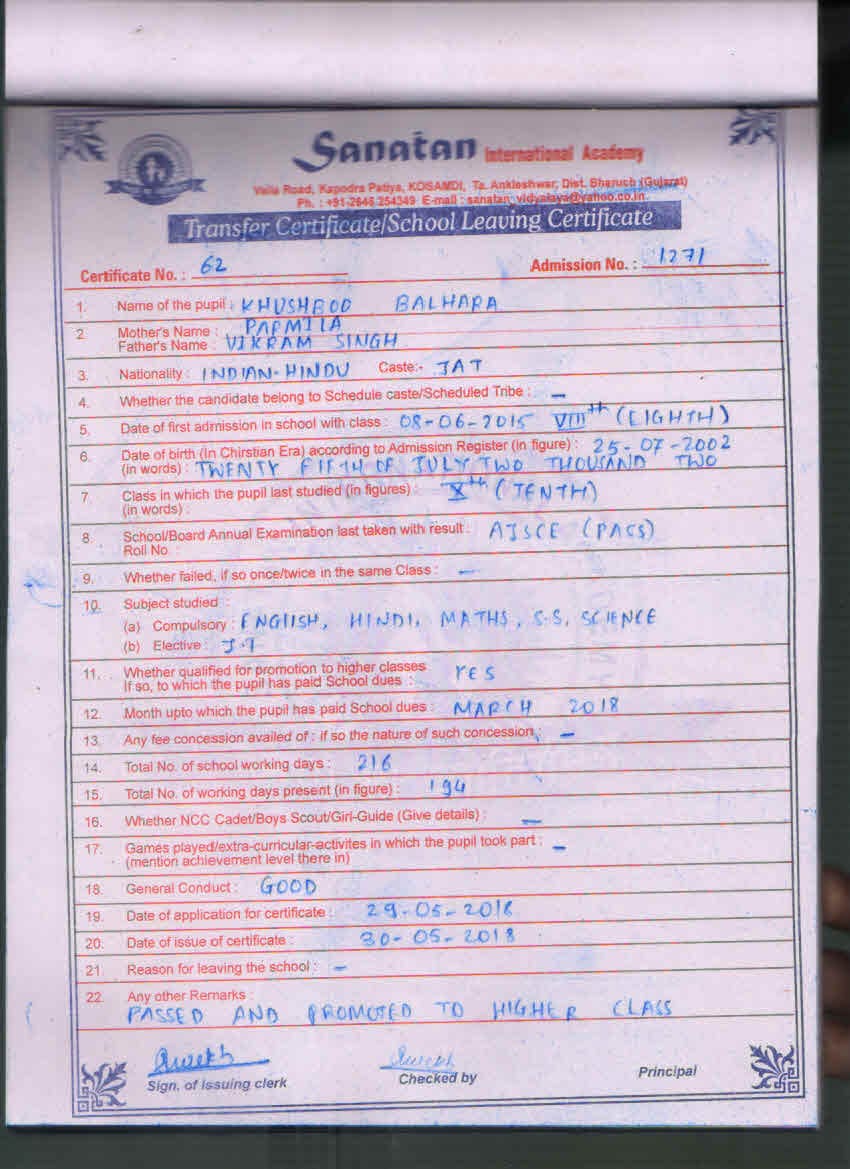 Sanatan International Academy
Valia Road, Kapodra Patiya, KOSAMDI, Ta. Ankleshwar, Dist. Bharuch (Gujarat)
Ph. : +91-2646 254349 E-mail : sanatan_vidyalaya@yahoo.co.in
Transfer Certificate/School Leaving Certificate
Certificate No. : 62 Admission No. : 1271
1. Name of the pupil : KHUSHBOO BALHARA
2. Mother's Name : PARMILA
Father's Name : VIKRAM SINGH
3. Nationality : INDIAN-HINDU Caste:- JAT
4. Whether the candidate belong to Schedule caste/Scheduled Tribe : —
5. Date of first admission in school with class : 08-06-2015 VIIIth (EIGHTH)
6. Date of birth (In Chirstian Era) according to Admission Register (in figure) : 25-07-2002
(in words) : TWENTY FIFTH OF JULY TWO THOUSAND TWO
7. Class in which the pupil last studied (in figures) : Xth (TENTH)
(in words) :
8. School/Board Annual Examination last taken with result : AISCE (PASS)
Roll No. :
9. Whether failed, if so once/twice in the same Class : —
10. Subject studied :
(a) Compulsory : ENGlISH, HINDI, MATHS, S.S, SCIENCE
(b) Elective : I.T
11. Whether qualified for promotion to higher classes YES
If so, to which the pupil has paid School dues :
12. Month upto which the pupil has paid School dues : MARCH 2018
13. Any fee concession availed of : if so the nature of such concession : —
14. Total No. of school working days : 216
15. Total No. of working days present (in figure) : 194
16. Whether NCC Cadet/Boys Scout/Girl-Guide (Give details) : —
17. Games played/extra-curricular-activites in which the pupil took part : —
(mention achievement level there in)
18. General Conduct : GOOD
19. Date of application for certificate : 29-05-2018
20. Date of issue of certificate : 30-05-2018
21. Reason for leaving the school : —
22. Any other Remarks :
PASSED AND PROMOTED TO HIGHER CLASS
Sign. of issuing clerk Checked by Principal